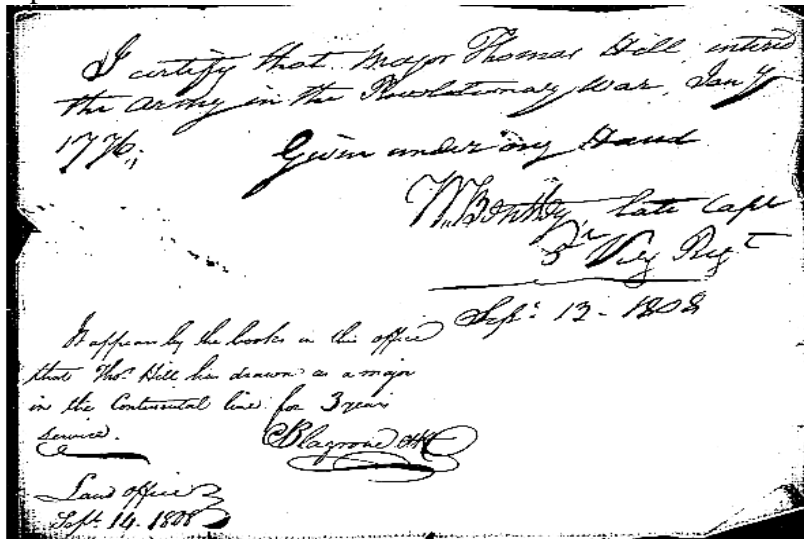 I certify that Major Thomas Hill entered
the Army in the Revolutionary War, Jany
1776;
Given under my Hand
W. Bentley, late Capt
3r Virg Regt
Sept: 13 - 1808
It appears by the books in this office
that Thos. Hill has drawn as a major
in the Continental line for 3 years
service.
Blagrove
Land office
Sept. 14. 1808